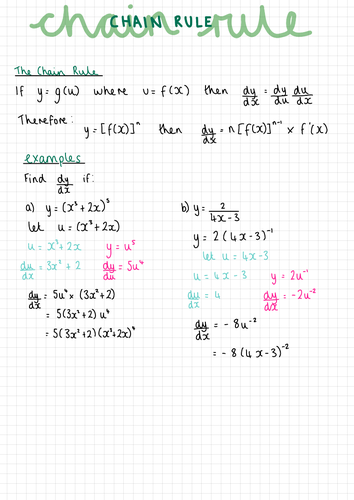 chain rule
CHAIN RULE
The Chain Rule
If y = g(u) where u = f(x) then dy/dx = dy/du du/dx
Therefore:
y = [f(x)]ⁿ then dy/dx = n[f(x)]ⁿ⁻¹ × f'(x)
examples
Find dy/dx if:
a) y = (x³ + 2x)⁵
let u = (x³ + 2x)
u = x³ + 2x y = u⁵
du/dx = 3x² + 2 dy/du = 5u⁴
dy/dx = 5u⁴ × (3x² + 2)
= 5(3x² + 2) u⁴
= 5(3x² + 2)(x³ + 2x)⁴
b) y = 2/(4x - 3)
y = 2(4x - 3)⁻¹
let u = 4x - 3
u = 4x - 3 y = 2u⁻¹
du/dx = 4 dy/dx = -2u⁻²
dy/dx = -8u⁻²
= -8(4x - 3)⁻²